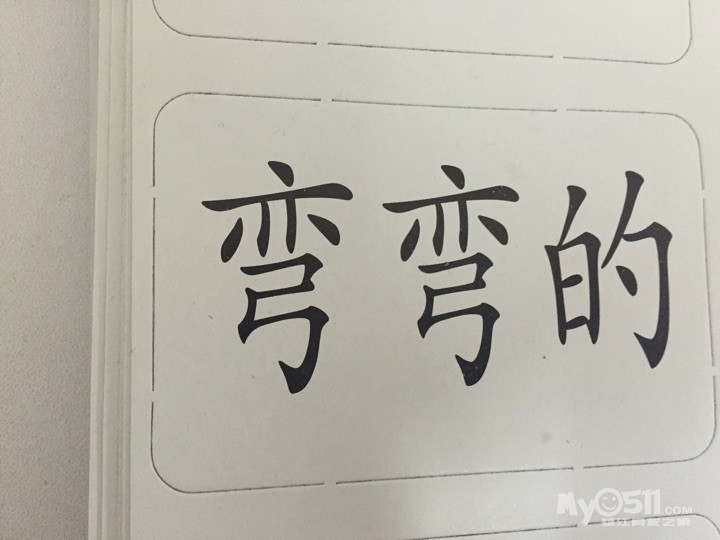 弯弯的
My0511.COM
镇江网友之家